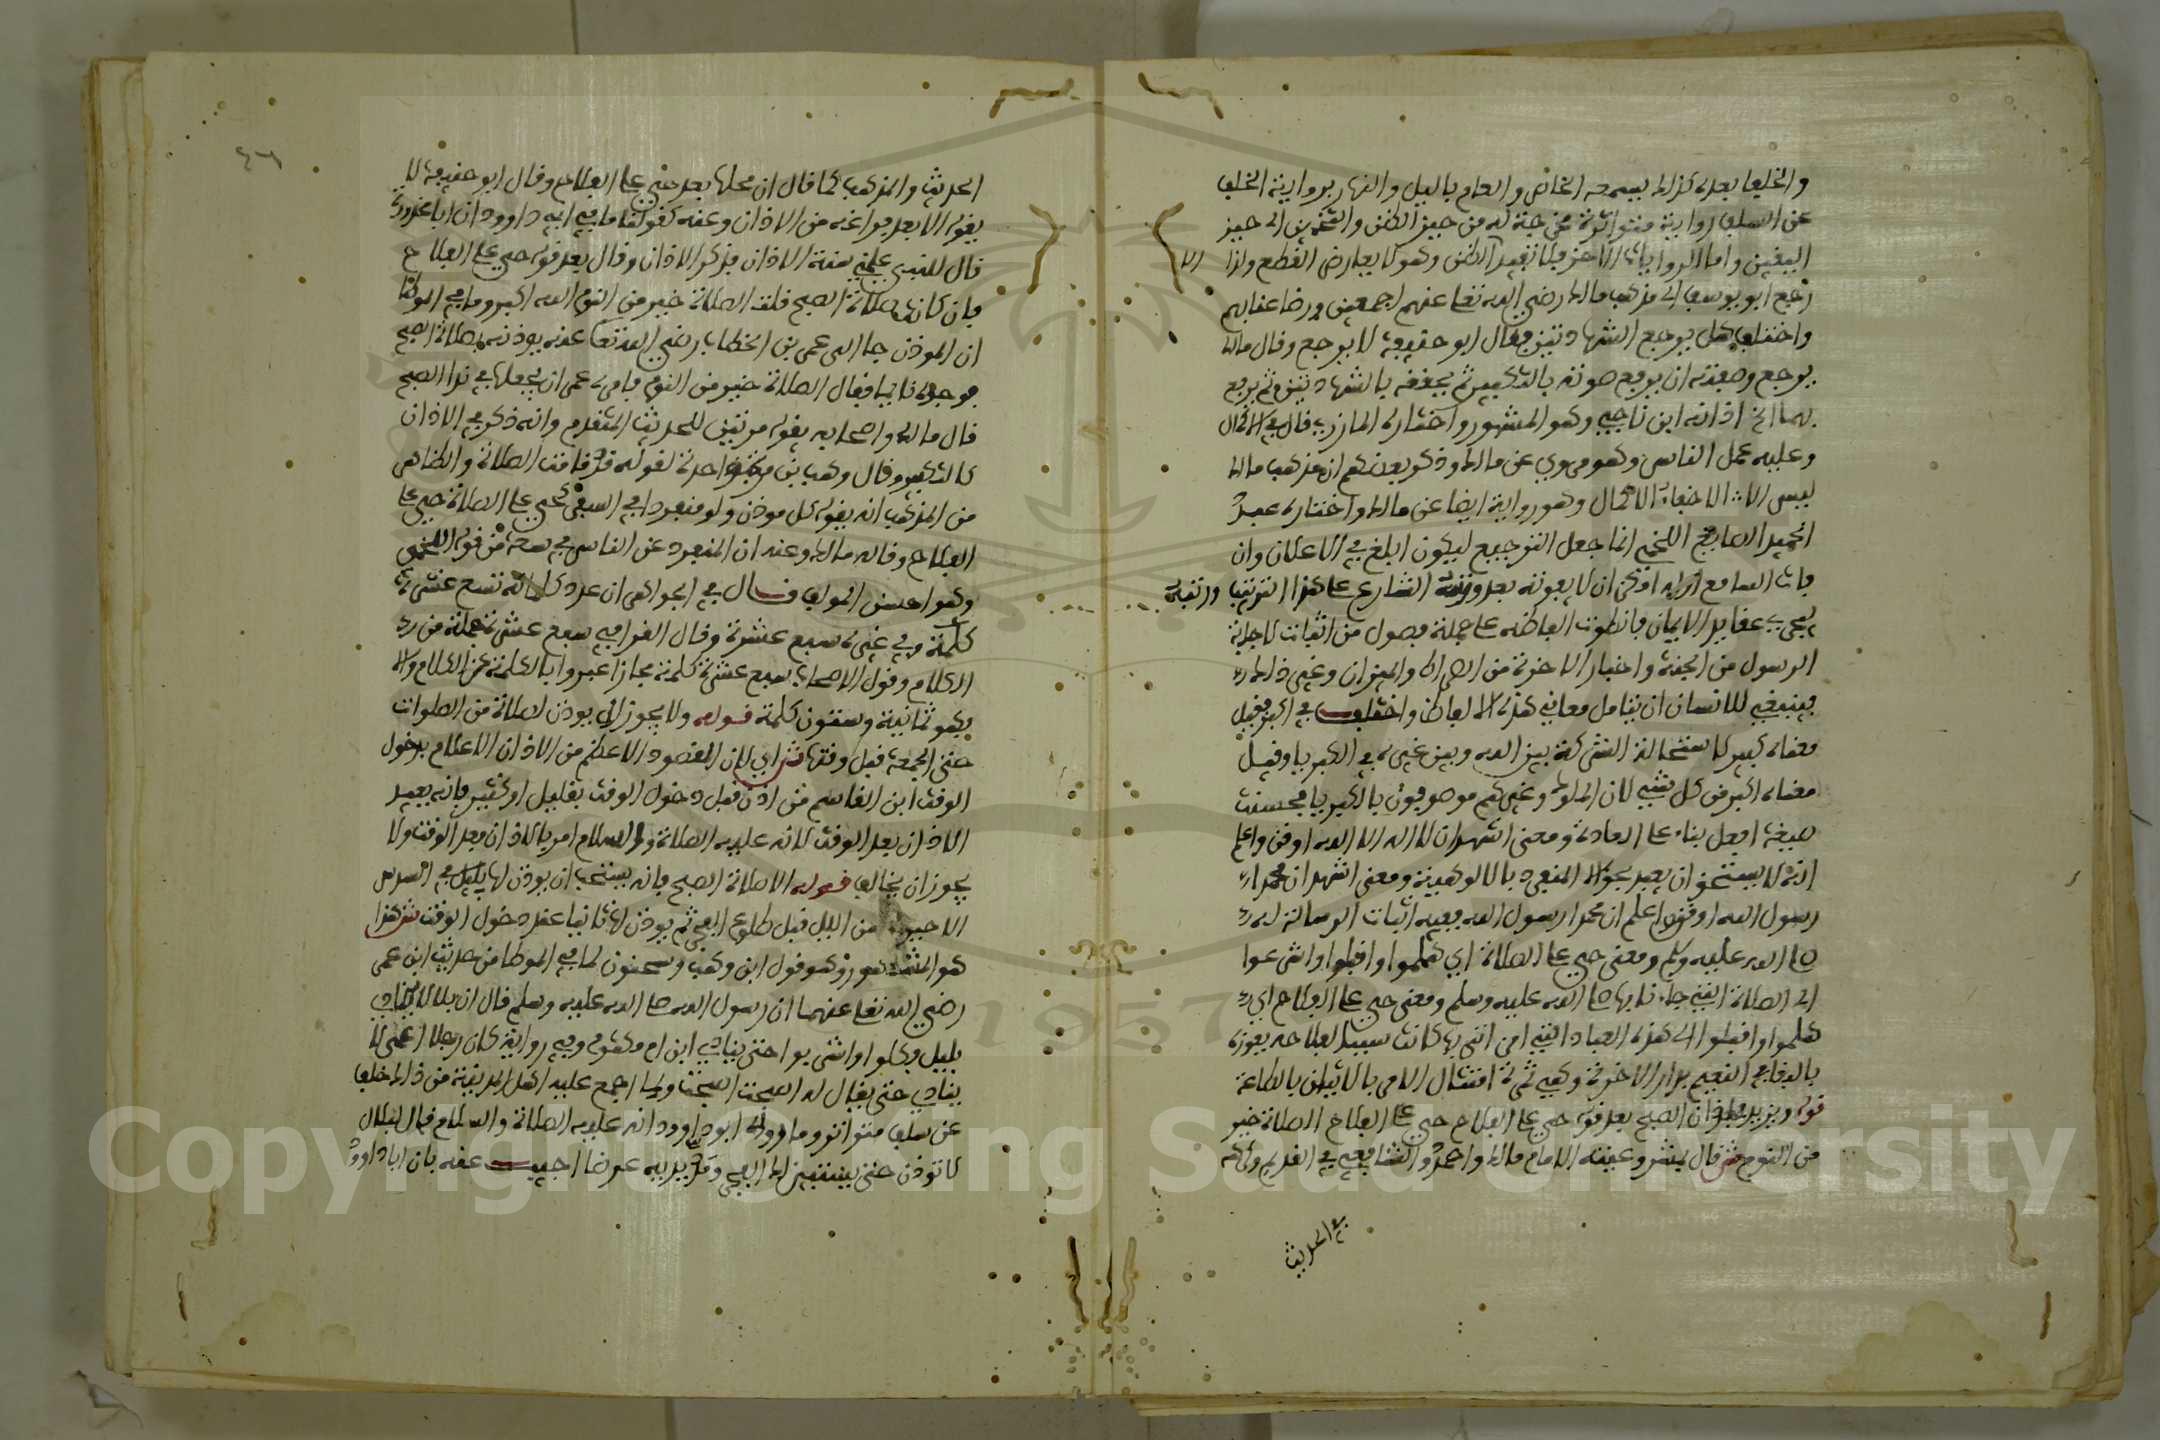 والخلفا بعده كذلك يسمعه الخاص والعام بالليل والنهار برواية الخلف
عن السلف رواية متواترة مخرجة له من حيز الظن والتخمين الى حيز
اليقين واما الروايات الاخر فلا تفيد الا الظن وهو لا يعارض القطع ولذا
رجع ابو يوسف الى مذهب مالك رضي الله تعالى عنهم اجمعين ورضا عنا بهم
واختلف هل يرجع الشهادتين فقال ابو حنيفة لا يرجع وقال مالك
يرجع وصفته ان يرفع صوته بالتكبير ثم يخففه بالشهادتين ثم يرفع
بهما الخ اذانه ابن ناجي وهو المشهور واختاره المازري قال في الاكمال
وعليه عمل الناس وهو مروي عن مالك وذكر بعضهم ان مذهب مالك
ليس الا الاخفاء الاكمال وهو رواية ايضا عن مالك واختاره عبد
الحميد الصايغ اللخمي انما جعل الترجيع ليكون ابلغ في الاعلان وان
فات السامع اوله امكن ان لا يفوته بعد ورتبه الشارع على هذا الترتيب ورتبه
يجري عقايد الايمان فانطوت الفاظه على جملة فصول من اثبات ما جا به
الرسول من الجنة واخبار الاخرة من الصراط والميزان وغير ذلك
فينبغي للانسان ان يتامل معاني هذه الالفاظ واختلف في اكبر فقيل
معناه كبير لاستحالة الشركة بين الله وبين غيره في الكبريا وقيل
معناه اكبر من كل شيء لان الملوك وغيرهم موصوفون بالكبريا فحسنت
صيغة افعل بناء على العادة ومعنى اشهد ان لا اله الا الله اوقن واعلم
انه لا يستحق ان يعبد بحق الا المنفرد بالالوهية ومعنى اشهد ان محمدا
رسول الله اوقن واعلم ان محمدا رسول الله ففيه اثبات الرسالة له
صلى الله عليه وسلم ومعنى حي على الصلاة اي هلموا واقبلوا واسرعوا
الى الصلاة التي جاءنا بها صلى الله عليه وسلم ومعنى حي على الفلاح اي
هلموا واقبلوا الى هذه العبادة التي من اتى بها كانت سببا لفلاحه بفوزه
بالبقا في النعيم بدار الاخرة وهي ثمرة امتثال الامر بالاتيان بالطاعة
قوله ويزيد في اذان الصبح بعد قوله حي على الفلاح حي على الفلاح الصلاة خير
من النوم ش قال بمشروعيته الامام مالك واحمد والشافعي في القديم ولهم
في الحديث
الحديث والمذهب كما قال ان محلها بعد حي على الفلاح وقال ابو حنيفة لا
يقوله الا بعد فراغه من الاذان وعنه كقولنا ما في ابي داوود ان ابا محذورة
قال للنبي علمني سنة الاذان فذكر الاذان وقال بعد قوله حي على الفلاح
فان كانت صلاة الصبح قلت الصلاة خير من النوم الله اكبر وما في الموطا
ان المؤذن جا الى عمر بن الخطاب رضي الله تعالى عنه يوذنه بصلاة الصبح
فوجده نايما فقال الصلاة خير من النوم فامره عمر ان يجعلها في ندا الصبح
قال مالك واصحابه يقوله مرتين للحديث المتقدم وانه ذكر في الاذان
كالتكبير وقال وهب بن مرة واحدة لقوله قد قامت الصلاة والظاهر
من المذهب انه يقوله كل موذن ولو منفردا في السفر كحي على الصلاة حي على
الفلاح وقاله مالك وعنه ان المنفرد عن الناس في سعة من قوله اللخمي
وهو احسن المواق قال في الجواهر ان عدد كلماته تسع عشرة
كلمة وفي غيره سبع عشرة وقال القرافي سبع عشرة جملة من
الكلام وقول الاصحاب سبع عشرة كلمة مجازا عبروا بالكلمة عن الكلام والا
فهو ثمانية وستون كلمة قوله ولا يجوز ان يوذن لصلاة من الصلوات
حتى الجمعة قبل وقتها ش اي لان المقصود الاعظم من الاذان الاعلام بدخول
الوقت ابن القاسم من اذن قبل دخول الوقت بقليل او كثير فانه يعيد
الاذان بعد الوقت لانه عليه الصلاة والسلام امر بالاذان بعد الوقت ولا
يجوز ان يخالف قوله الا صلاة الصبح فانه يستحب ان يوذن لها بليل في السدس
الاخير من الليل قبل طلوع الفجر ثم يوذن لها ثانيا عند دخول الوقت ش هذا
هو المشهور وهو قول ابن وهب وسحنون لما في الموطا من حديث ابن عمر
رضي الله تعالى عنهما ان رسول الله صلى الله عليه وسلم قال ان بلالا ينادي
بليل فكلوا واشربوا حتى ينادي ابن ام مكتوم وفي رواية كان رجلا اعمى لا
ينادي حتى يقال له اصبحت اصبحت ولما اجمع عليه اهل المدينة من ذلك خلف
عن سلف متواتر وما رواه ابو داوود انه عليه الصلاة والسلام قال لبلال
لا توذن حتى يستبين لك الفجر ومد يديه عرضا اجيب عنه بان ابا داوود